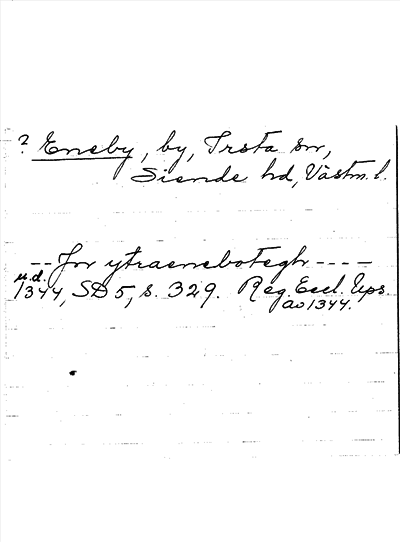 ? Eneby, by, Irsta sn,
Siende hd, Västm. l.
-- Jn ytraenebotegh ----
u.d.
1344, SD 5, s. 329. Reg. Eccl. Ups.
av 1344.